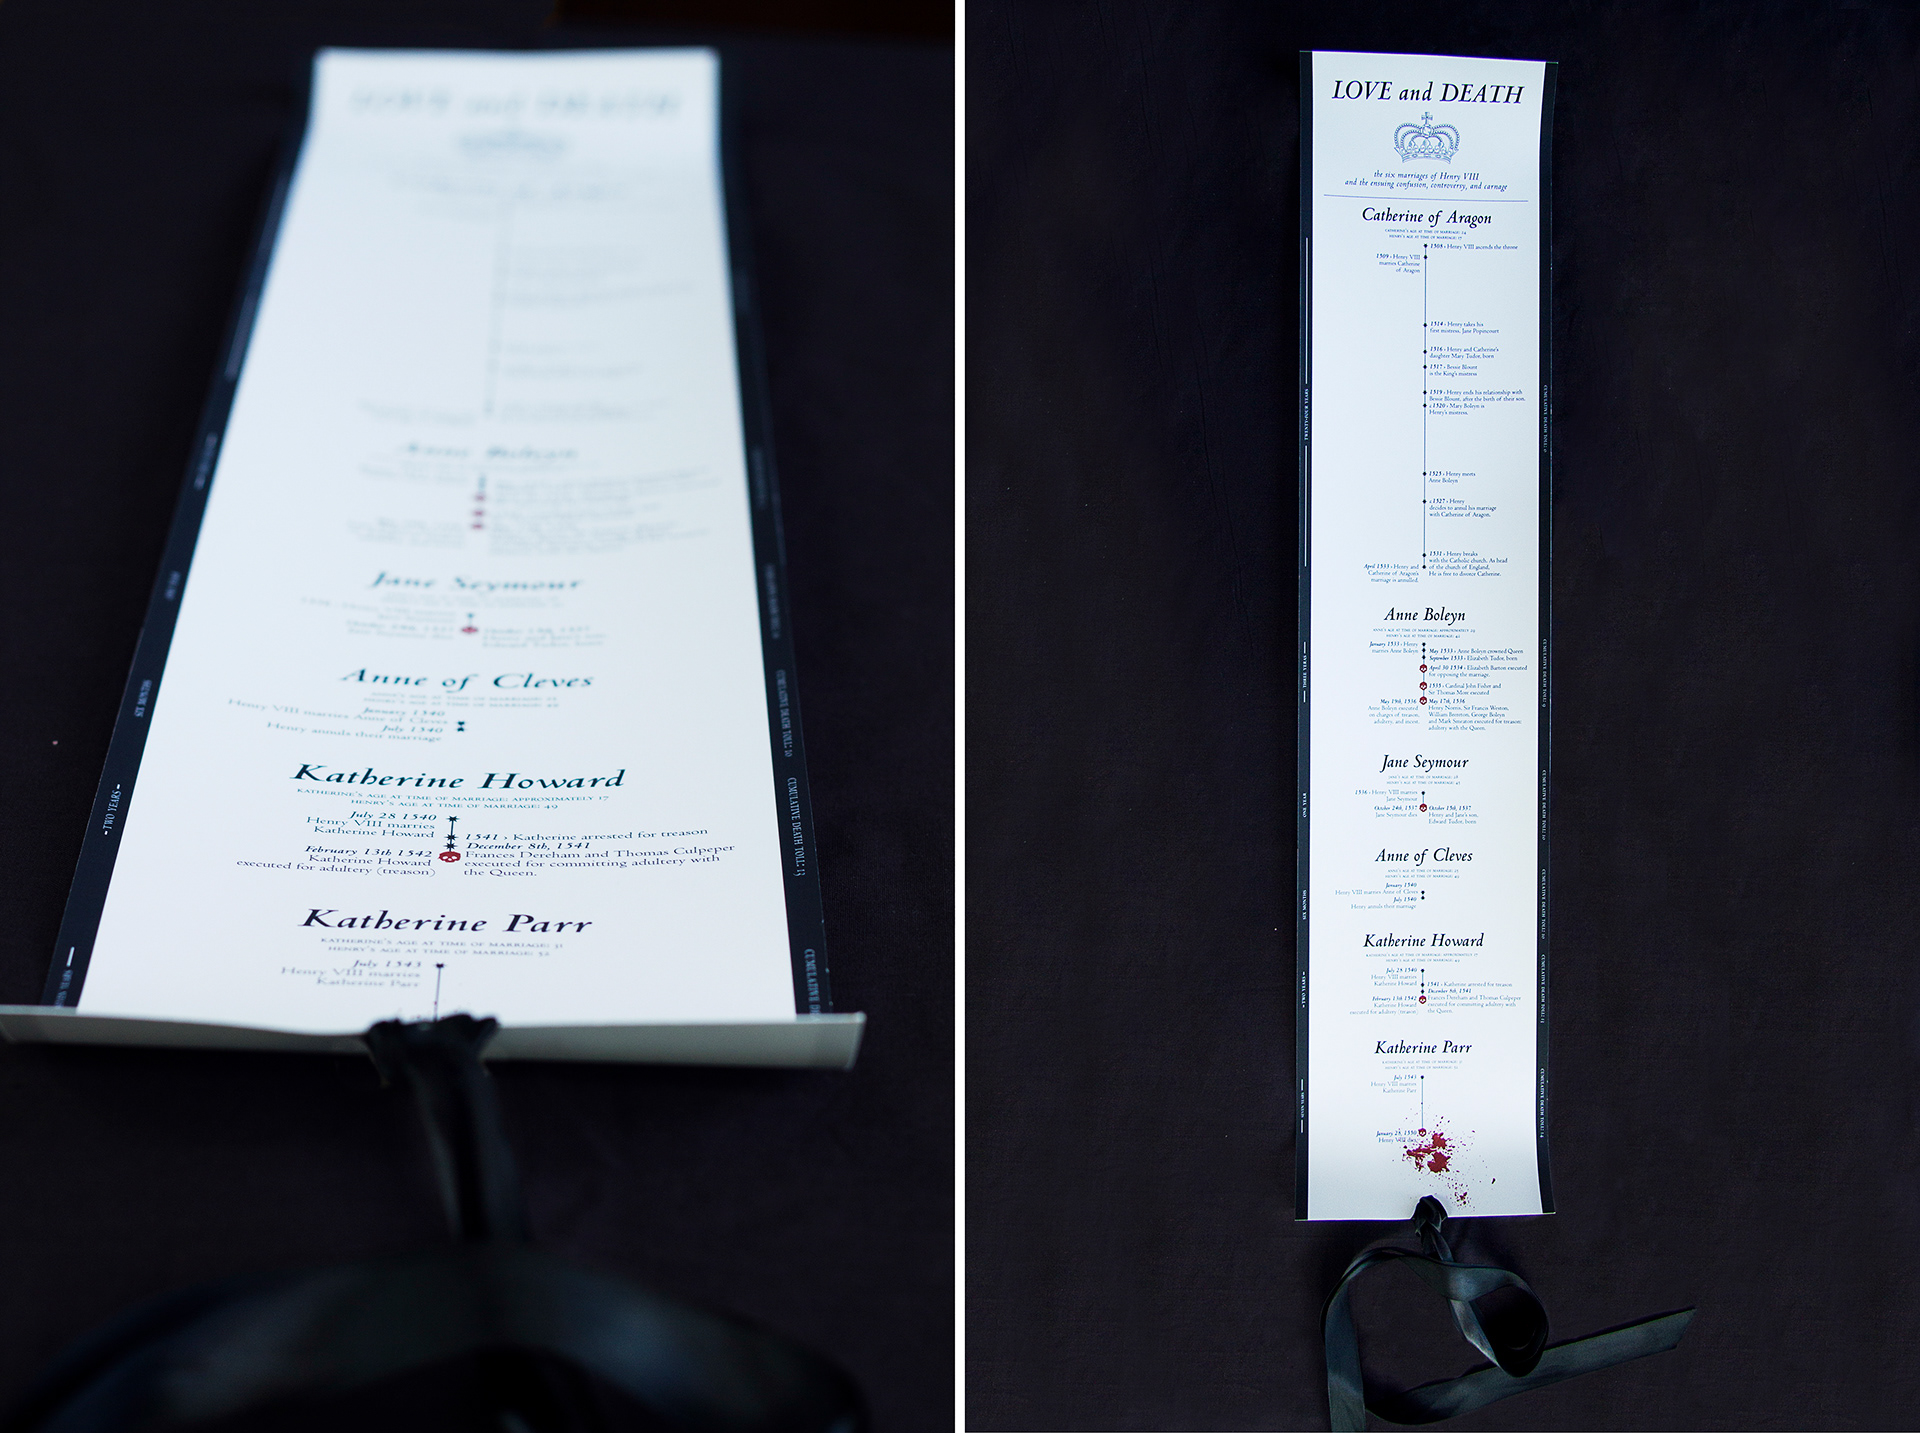 Anne Boleyn
Jane Seymour
Anne of Cleves
January 1540
Henry VIII marries Anne of Cleves
July 1540
Henry annuls their marriage
Katherine Howard
KATHERINE'S AGE AT TIME OF MARRIAGE: APPROXIMATELY 17
HENRY'S AGE AT TIME OF MARRIAGE: 49
July 28 1540
Henry VIII marries
Katherine Howard
1541 › Katherine arrested for treason
December 8th, 1541
Frances Dereham and Thomas Culpeper
executed for committing adultery with
the Queen.
February 13th 1542
Katherine Howard
executed for adultery (treason)
Katherine Parr
KATHERINE'S AGE AT TIME OF MARRIAGE: 31
HENRY'S AGE AT TIME OF MARRIAGE: 52
July 1543
Henry VIII marries
Katherine Parr
SIX MONTHS
TWO YEARS
CUMULATIVE DEATH TOLL: 10
CUMULATIVE DEATH TOLL: 13
LOVE and DEATH
the six marriages of Henry VIII
and the ensuing confusion, controversy, and carnage
Catherine of Aragon
CATHERINE'S AGE AT TIME OF MARRIAGE: 24
HENRY'S AGE AT TIME OF MARRIAGE: 17
1508 › Henry VIII ascends the throne
1509 › Henry VIII
marries Catherine
of Aragon
1514 › Henry takes his
first mistress, Jane Popincourt
1516 › Henry and Catherine's
daughter Mary Tudor, born
1517 › Bessie Blount
is the King's mistress
1519 › Henry ends his relationship with
Bessie Blount, after the birth of their son.
c1520 › Mary Boleyn is
Henry's mistress.
1525 › Henry meets
Anne Boleyn
c1527 › Henry
decides to annul his marriage
with Catherine of Aragon.
1531 › Henry breaks
with the Catholic church. As head
of the church of England,
He is free to divorce Catherine.
April 1533 › Henry and
Catherine of Aragon's
marriage is annulled.
TWENTY-FOUR YEARS
Anne Boleyn
ANNE'S AGE AT TIME OF MARRIAGE: APPROXIMATELY
HENRY'S AGE AT TIME OF MARRIAGE:
January 1533 › Henry
marries Anne Boleyn
May 1533 › Anne Boleyn crowned Queen
September 1533 › Elizabeth Tudor, born
April 30 1534 › Elizabeth Barton executed
for opposing the marriage.
1535 › Cardinal John Fisher and
Sir Thomas More executed
May 19th, 1536
Anne Boleyn executed
on charges of treason,
adultery, and incest.
May 17th, 1536
Henry Norris, Sir Francis Weston,
William Brereton, George Boleyn
and Mark Smeaton executed for treason
adultery with the Queen.
THREE YEARS
Jane Seymour
JANE'S AGE AT TIME OF MARRIAGE: 28
HENRY'S AGE AT TIME OF MARRIAGE: 45
1536 › Henry VIII marries
Jane Seymour
October 24th, 1537
Jane Seymour dies
October 15th, 1537
Henry and Jane's son,
Edward Tudor, born
ONE YEAR
Anne of Cleves
ANNE'S AGE AT TIME OF MARRIAGE: 25
HENRY'S AGE AT TIME OF MARRIAGE: 49
January 1540
Henry VIII marries Anne of Cleves
July 1540
Henry annuls their marriage
SIX MONTHS
Katherine Howard
KATHERINE'S AGE AT TIME OF MARRIAGE: APPROXIMATELY 17
HENRY'S AGE AT TIME OF MARRIAGE: 49
July 28 1540
Henry VIII marries
Katherine Howard
1541 › Katherine arrested for treason
December 8th, 1541
Frances Dereham and Thomas Culpeper
executed for committing adultery with
the Queen.
February 13th 1542
Katherine Howard
executed for adultery (treason)
TWO YEARS
Katherine Parr
KATHERINE'S AGE AT TIME OF MARRIAGE: 31
HENRY'S AGE AT TIME OF MARRIAGE: 52
July 1543
Henry VIII marries
Katherine Parr
January 28, 1550
Henry VIII dies
CUMULATIVE DEATH TOLL: 0
CUMULATIVE DEATH TOLL: 9
CUMULATIVE DEATH TOLL: 10
CUMULATIVE DEATH TOLL: 10
CUMULATIVE DEATH TOLL: 13
CUMULATIVE DEATH TOLL: 14